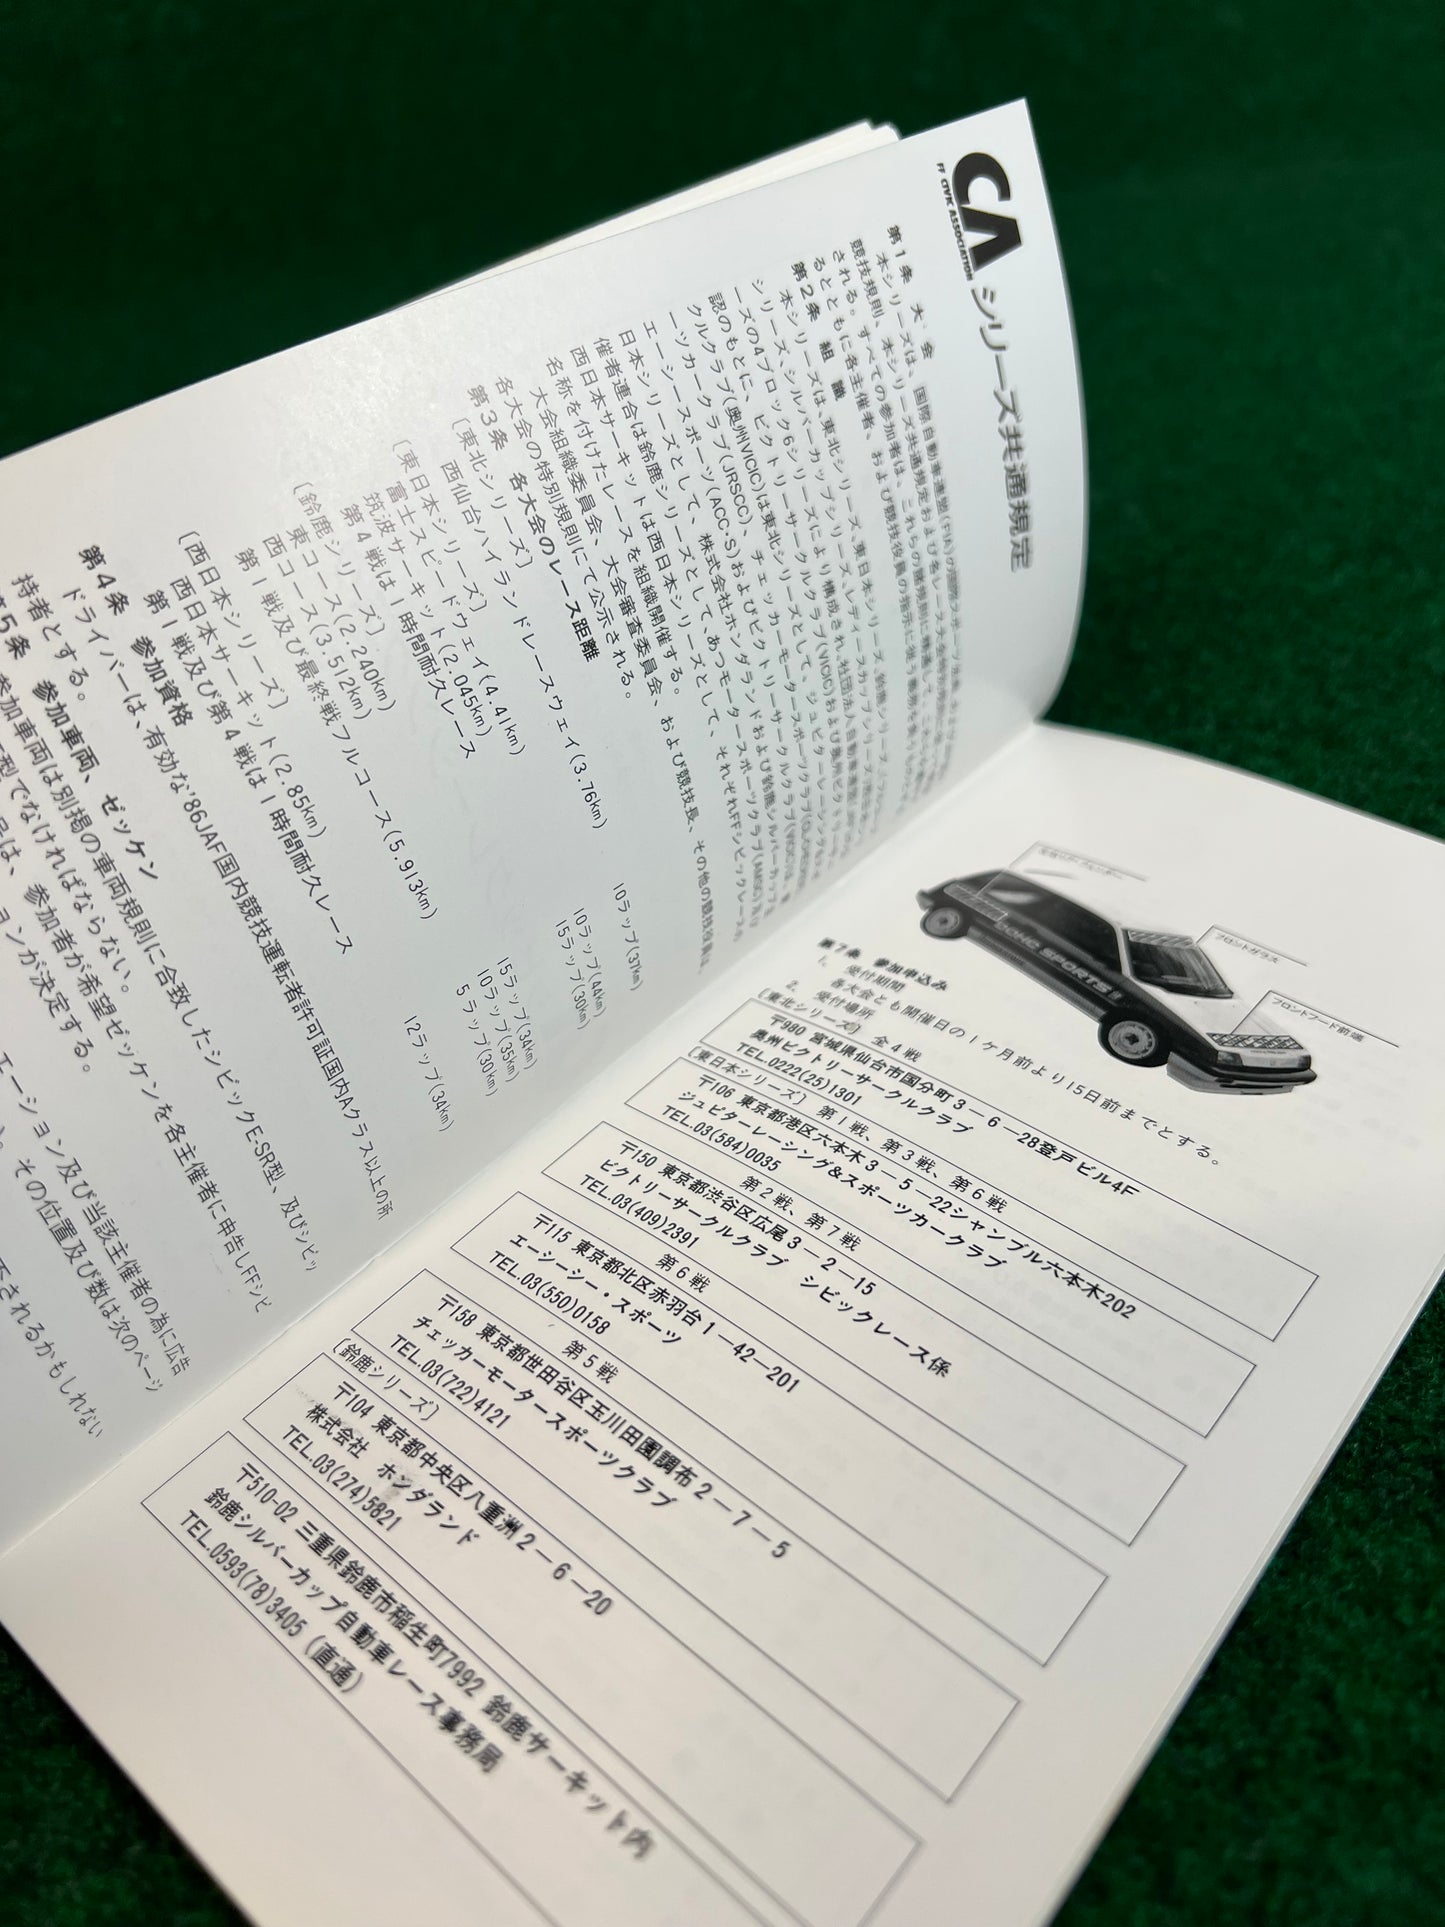 CA シリーズ共通規定
FF CIVIC ASSOCIATION
第1条 大会
本シリーズは、国際自動車連盟(FIA)の国際スポーツ法典
競技規則、本シリーズ共通規定および各レース大会特別規則に
される。すべての参加者は、これらの諸規則に精通して
るとともに各主催者、および競技役員の指示に従う義務
第2条 組織
本シリーズは、東北シリーズ、東日本シリーズ、鈴鹿シリーズ
シリーズ、シルバーカップシリーズ、レディースカップシリーズ
ーズの4ブロック6シリーズにより構成され、社団法人自動車連盟
認のもとに、ビクトリーサークルクラブ(VICIC)および奥州ビクトリーサー
クルクラブ(奥州VICIC)は東北シリーズとして、ジュピターレーシング&スポ
ーツカークラブ(JRSCC)、チェッカーモータースポーツクラブ
エーシースポーツ(ACC・S)およびビクトリーサークルクラブ(VICIC)は東
日本シリーズとして、株式会社ホンダランドおよび鈴鹿シルバーカップ
催者連合は鈴鹿シリーズとして、あつモータースポーツクラブ(AMSC)及び
西日本サーキットは西日本シリーズとして、それぞれFFシビックレースの
名称を付けたレースを組織開催する。
大会組織委員会、大会審査委員会、および競技長、その他の競技役員は、
各大会の特別規則にて公示される。
第3条 各大会のレース距離
〔東北シリーズ〕
西仙台ハイランドレースウェイ(3.76km) 10ラップ(37km)
〔東日本シリーズ〕
富士スピードウェイ(4.41km) 10ラップ(44km)
筑波サーキット(2.045km) 15ラップ(30km)
第4戦は1時間耐久レース
〔鈴鹿シリーズ〕
東コース(2.240km) 15ラップ(34km)
西コース(3.512km) 10ラップ(35km)
第1戦及び最終戦フルコース(5.913km) 5ラップ(30km)
〔西日本シリーズ〕
西日本サーキット(2.85km) 12ラップ(34km)
第1戦及び第4戦は1時間耐久レース
第4条 参加資格
ドライバーは、有効な'86JAF国内競技運転者許可証国内Aクラス以上の所
持者とする。
第5条 参加車両、ゼッケン
参加車両は別掲の車両規則に合致したシビックE-SR型、及びシビッ
型でなければならない。
は、参加者が希望ゼッケンを各主催者に申告しFFシビ
ョンが決定する。
エーション及び当該主催者の為に広告
その位置及び数は次のページ
否されるかもしれない
DOHC SPORTS
フロントガラス
フロントフード前端
第7条 参加申込み
1. 受付期間
各大会とも開催日の1ケ月前より15日前までとする。
2. 受付場所
〔東北シリーズ〕 全4戦
〒980 宮城県仙台市国分町3-6-28登戸ビル4F
奥州ビクトリーサークルクラブ
TEL.0222(25)1301
〔東日本シリーズ〕 第1戦、第3戦、第6戦
〒106 東京都港区六本木3-5-22シャンブル六本木202
ジュピターレーシング&スポーツカークラブ
TEL.03(584)0035
第2戦、第7戦
〒150 東京都渋谷区広尾3-2-15
ビクトリーサークルクラブ シビックレース係
TEL.03(409)2391
第6戦
〒115 東京都北区赤羽台1-42-201
エーシー・スポーツ
TEL.03(550)0158
第5戦
〒158 東京都世田谷区玉川田園調布2-7-5
チェッカーモータースポーツクラブ
TEL.03(722)4121
〔鈴鹿シリーズ〕
〒104 東京都中央区八重洲2-6-20
株式会社 ホンダランド
TEL.03(274)5821
〒510-02 三重県鈴鹿市稲生町7992 鈴鹿サーキット内
鈴鹿シルバーカップ自動車レース事務局
TEL.0593(78)3405(直通)